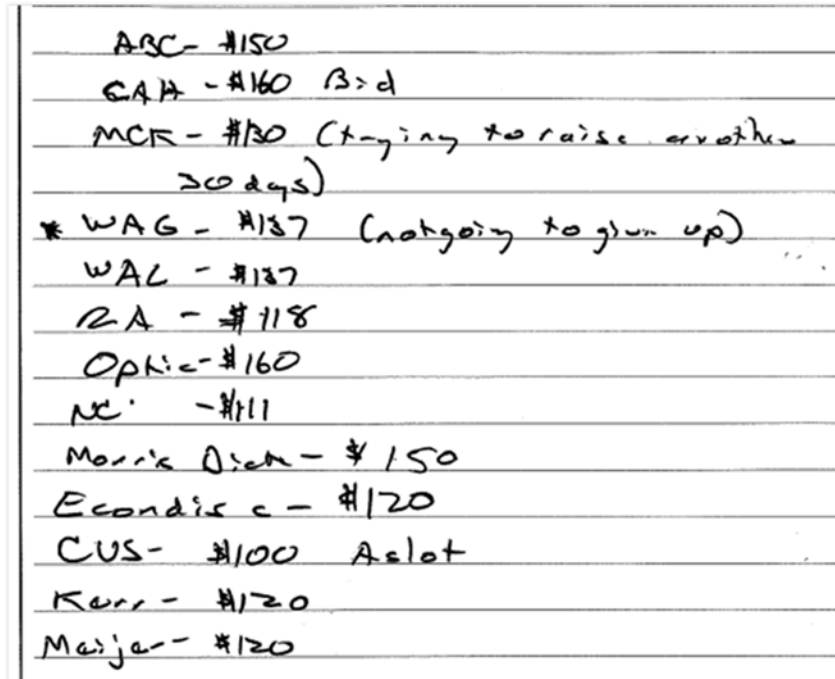 ABC- $150
CAH - $160 Bid
MCK - $130 (trying to raise another
30 days)
* WAG - $137 (not going to give up)
WAL - $137
RA - $118
Optic - $160
NC - $111
Morris Dick - $150
Econdisc - $120
CVS - $100 Aslot
Kerr - $120
Meijer - $120